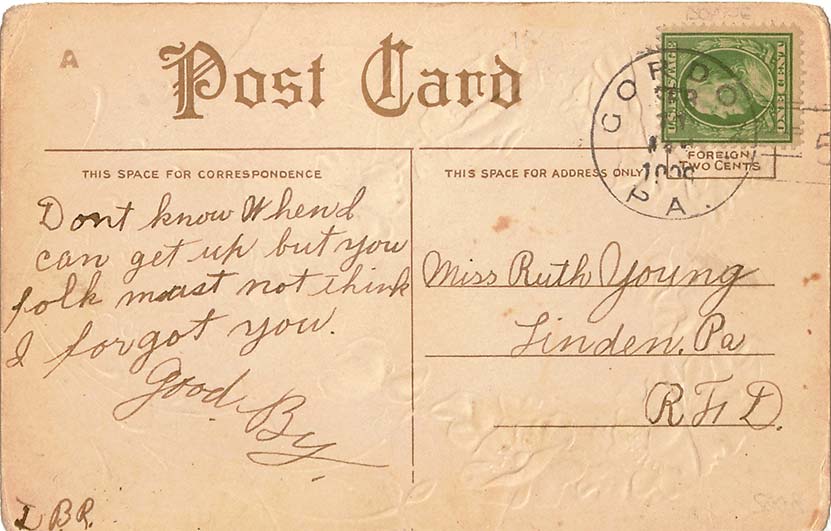 A
Post Card
THIS SPACE FOR CORRESPONDENCE
Dont know When I
can get up but you
folk must not think
I forgot you.
Good By.
I. B. R.
U.S. POSTAGE
ONE CENT
FOREIGN
TWO CENTS
PA.
THIS SPACE FOR ADDRESS ONLY
Miss Ruth Young
Linden, Pa
R F D.